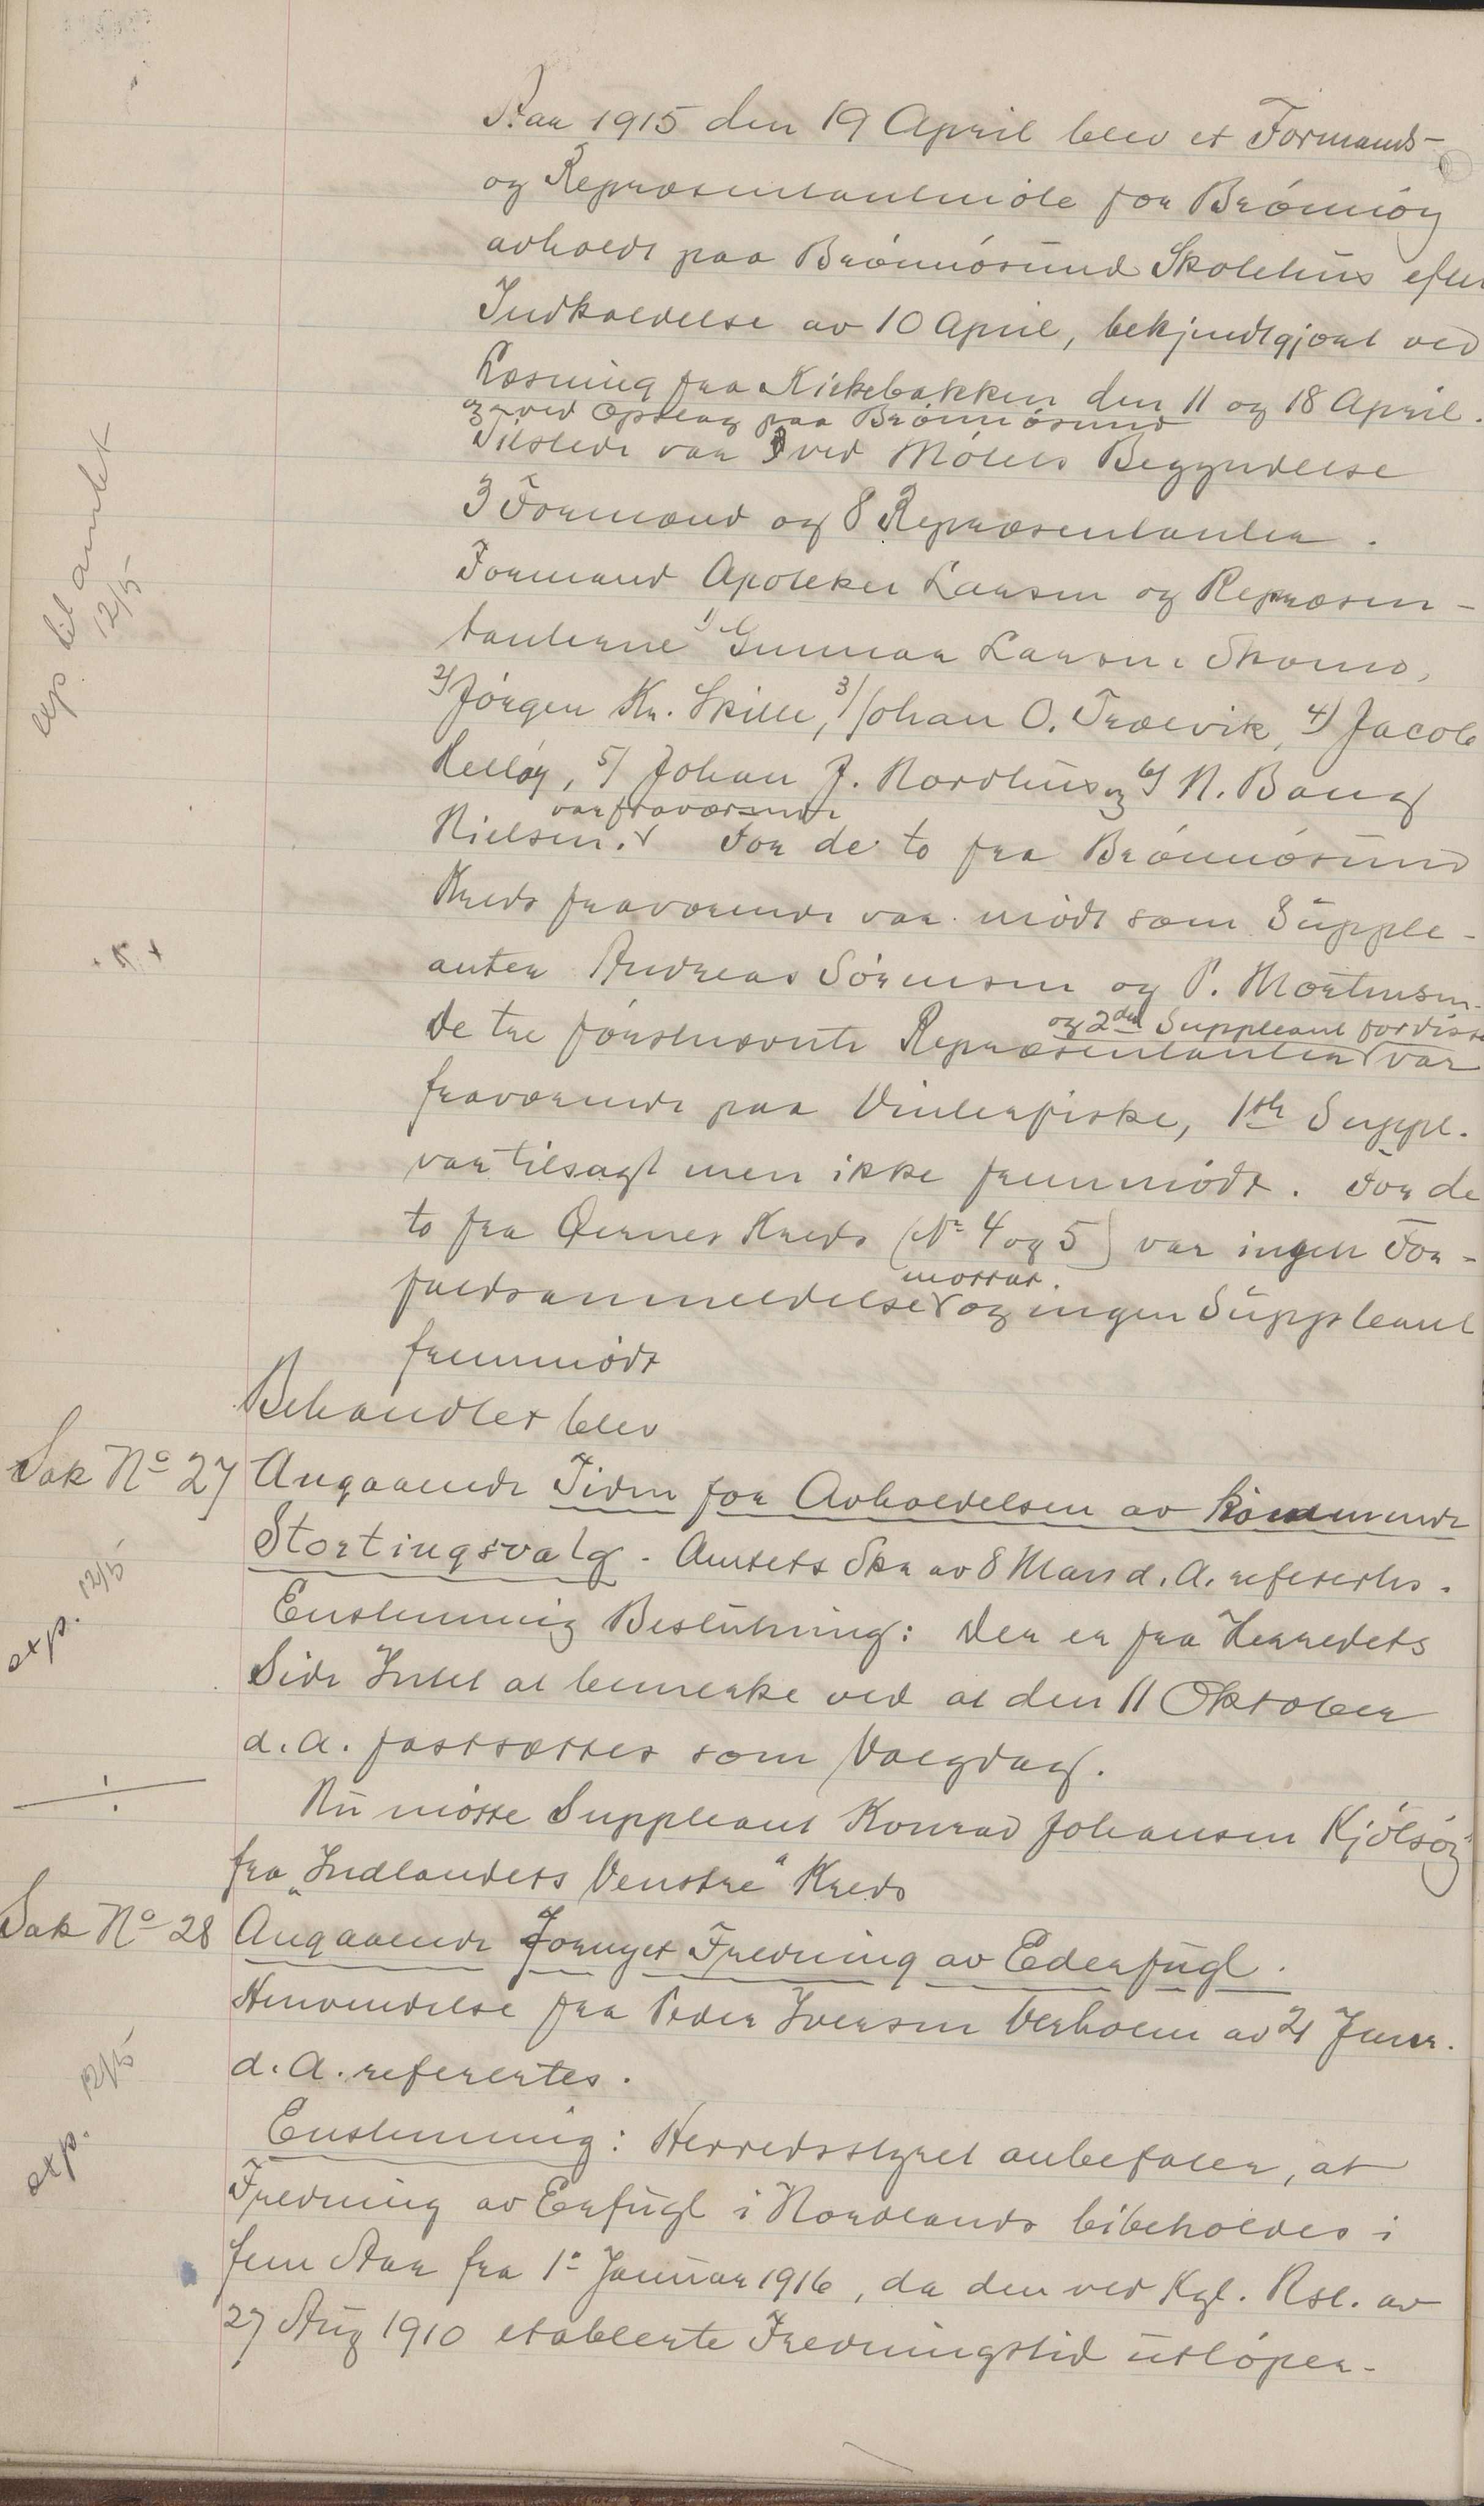 Aar 1915 den 19 April blev et Formands-
og Repræsentantmöte for Brönnöy
avholdt paa Brönnösund Skolehus efter
Indkaldelse av 10 April, bekjendtgjort ved
Læsning fra Kirkebakken den 11 og 18 April.
og ved Opslag paa Brönnösund
Tilstede var ved Mötets Begyndelse
3 Formænd og 8 Repræsentanter.
Formand Apoteker Larsen og Repræsen-
tanterne 1) Gunnar Larsen
2) Jörgen Kr. Skille, 3) Johan O. Trælvik, 4) Jacob
Hellöy, 5) Johan J. Nordhus og 6) N. Bang
var fraværende
Nielsen. For de to fra Brönnösund
Kreds fraværende var mödt som Supple-
anter Andreas Sörensen og P. Mortensen.
og 2den Suppleant for disse
De tre förstnævnte Repræsentanter var
fraværende paa Vinterfiske, 1ste Suppl.
var tilsagt men ikke fremmödt. For de
to fra Öernes Kreds (No 4 og 5) var ingen For-
mottat.
faldsanmeldelse og ingen Suppleant
fremmödt
Behandlet blev
Sak No 27 Angaaende Tiden for Avholdelsen av kommende
Stortingsvalg. Amtets Skr av 8 Mars d. A. refertes.
Enstemmig Beslutning: Der er fra Herredets
Side Intet at bemerke ved at den 11 Oktober
d. A. fastsættes som Valgdag.
Nu mötte Suppleant Konrad Johansen Kjölsöy
fra "Indlandets Venstre" Kreds
Sak No 28 Angaaende Fornyet Fredning av Ederfugl.
Henvendelse fra Peder Iversen Verholm av 21 Janr.
d. A. refertes.
Enstemmig: Herredsstyret anbefaler, at
Fredning av Erfugl i Nordlands bibeholdes i
fem Aar fra 1° Januar 1916, da den ved Kgl. Rsl. av
27 Aug 1910 etablerte Fredningstid utlöper.
exp til amtet
12/5
exp. 12/5
exp. 12/5